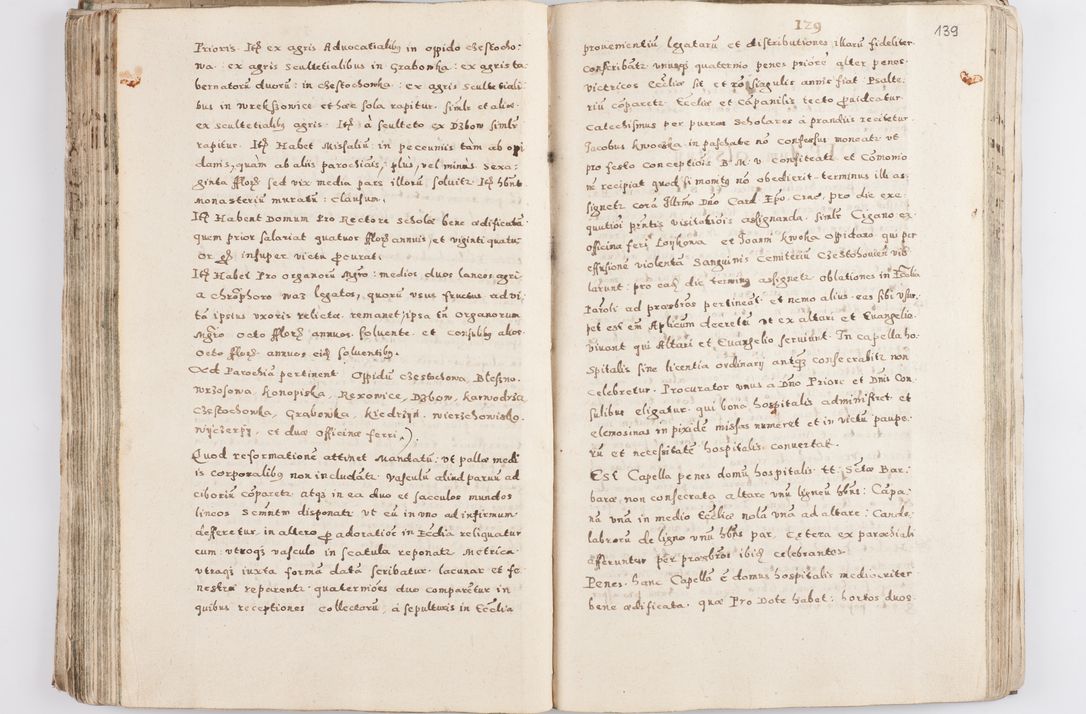 Prioris. Itẽ ex agris Advocatialibus in oppido Czestocho:
wa: ex agris scultetialibus in Grabonka: ex agris ta
bernatorũ duorũ: in Czestochowka: ex agris Scultetiali
bus in Wrekszowice et hæc sola rapitur. similr et alias
ex scultetialibus agris. Itẽ à sculteto ex Dzbow similr
rapitur. Itẽ Habet Missaliũ in pecuniis tam ab oppi
danis, quàm ab aliis parochiais, plus, vel minus sexa:
ginta fflorz sed vix media pars illorũ soluitr Itẽ hbnt
monasteriũ muratũ: clausum.
Itẽ Habent Domum Pro Rectore scholæ bene ædificatã
quem prior salariat quatuor fflorz annuis, et viginti quatu
or insuper victũ ꝓcurat.
Itẽ Habet Pro organorũ Mgro: medios duos laneos agri
a Chrõphoro was legatos, quorũ usus fructus ad vi
tã ipsius vxoris relictæ remanet, ipsa tñ organorum
Mgro octo fflorz annuos soluente et consulibus alios
octo fflorz annuos eidẽ soluentibus.
Ad Parochiã pertinent Oppidũ Czestochowa, Bleszno
Wrzosowa, Konopiska, Rexowice, Dzbow, Karwodrza
Czestochowka, Grabowka, Kiedrzyn, Wierzchowisko
Wyczerpy, et duæ officinæ ferri.
Quod reformationẽ attinet Mandatũ: vt pallæ medi
is corporalibus non includãtr vasculũ aliud paruũ ad
ciborium cõparetr atqz in ea duo et sacculos mundos
lineos Scmntm disponatr vt eũ in vno ad infirmum
defferetur in altero ꝓ adoratioẽ in Ecclia reliquatur
cum: vtroqz vasculo in scatula reponatr Metrica
vtraqz iuxta formã datã scribatur. lacunar et fe
nestræ reparentr quaterniões duo comparẽtur in
quibus receptiones collectorũ, à sepulturis in Ecclia
129
139
prouementiũ legatarũ et distributiones illarũ fideliter
conscribãtr vnusqz quaternio penes priorẽ alter penes
victricos Eccliæ sit et rõ singulis annis fiat Psalte
riũ cõparetr Eccliæ et cãpanilis tecto ꝓuideatur.
Catechismus per pueros scholares à prandiis recitetur.
Jacobus Kwoczka in paschate nõ confessus moneatr vt
pro festo conceptiõis B. M. v confiteatr et Cõmonio
nẽ recipiat quod si monitus nõ obedierit terminus illi as:
signetr corã Illrmo Dño Card. Epo. Crac. pro die exe
quutiõi prñtis visitatiõis assignanda. similr Cigano ex
officina ferri Loykowa et Joanni Kwoka oppidano qui per
effusionẽ violentã Sanguinis Cemiteriũ Czestochouien vio
larunt: pro eadẽ die terminus assignetr oblationes in Ecclia
Paroli ad præsbros pertineãt et nemo alius eas sibi vsur
pet est em Aplicum decretũ vt ex altari et Euangelio
viuant qui Altari et Euangelio seruiunt. In capella ho
spitalis sine licentia ordinarij antqz consecrabitr non
celebretur. Procurator vnus à Dño Priore et Dñis Con
sulibus eligatur, qui bona hospitalis administret et
elemosinas in pixidẽ missas numeret et in victũ paupe.
rũ et necessitatẽ hospitalis conuertat.
Est Capella penes domũ hospitalis tt. Sctæ Bar:
baræ non consecrata altare vnũ ligneũ hbns: Cãpa
nã vnã in medio Eccliæ nolã vnã ad altare: Cande
labrorũ de ligno vnũ hbns par, Cetera ex parochiali
afferuntur per præsbros ibidẽ celebrantes.
Penes hanc Capellã ẽ domus hospitalis mediocriter
bene ædificata, quæ Pro Dote habet: hortos duos